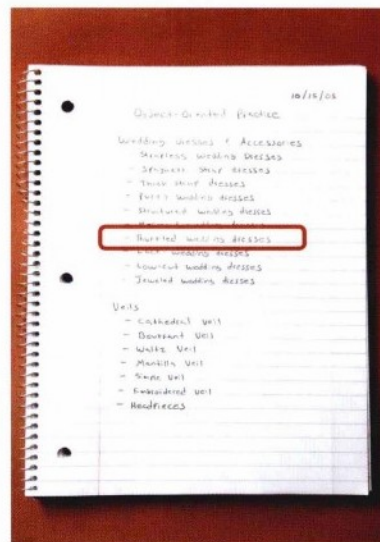 10/15/05
Object-Oriented Practice
Wedding Dresses & Accessories
- Strapless Wedding Dresses
- Spaghetti strap dresses
- Thick strap dresses
- Puffy wedding dresses
- Structured wedding dresses
wedding dresses
wedding dresses
wedding dresses
- Low-cut wedding dresses
- Jeweled wedding dresses
Veils
- Cathedral Veil
- Bouffant Veil
- Waltz Veil
- Mantilla Veil
- Simple Veil
- Embroidered Veil
- Headpieces